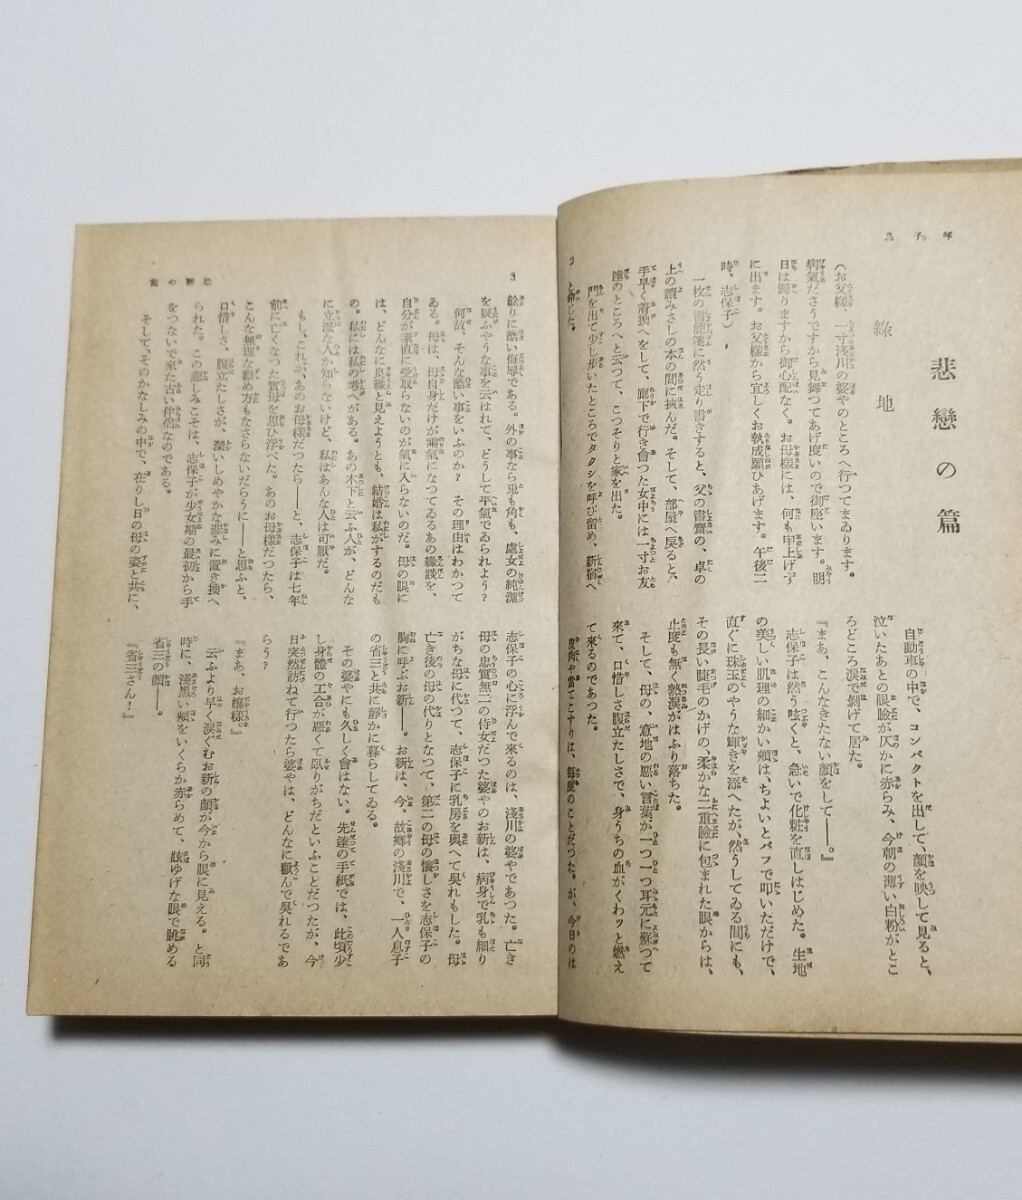 鳥子呼
悲戀の篇
綠地
(お父樣、一寸淺川の婆やのところへ行つてまゐります。
病氣ださうですから見舞つてあげ度いので御座います。明
日は歸りますから御心配なく。お母樣には、何も申上げず
に出ます。お父樣から宜しくお執成願ひあげます。午後二
時、志保子)
一枚の書簡箋に然う走り書きすると、父の書齋の、卓の
上の讀みさしの本の間に挾んだ。そして、部屋へ戾ると、
手早く着換へをして、廊下で行き會つた女中には一寸お友
達のところへと云つて、こつそりと家を出た。
門を出て少し歩いたところでタクシを呼び留め、新宿へ
と命じた。
2
自動車の中で、コンパクトを出して、顏を映して見ると、
泣いたあとの眼瞼が仄かに赤らみ、今朝の薄い白粉がとこ
ろどころ淚で剝げて居た。
『まあ、こんなきたない顏をして――。』
志保子は然う呟くと、急いで化粧を直しはじめた。生地
の美しい肌理の細かい頰は、ちよいとパフで叩いただけで、
直ぐに珠玉のやうな輝きを添へたが、然うしてゐる間にも、
その長い睫毛のかげの、柔かな二重瞼に包まれた眼からは、
止度も無く熱淚がはふり落ちた。
そして、母の、意地の惡い言葉が一つ一つ耳元に蘇つて
來て、口惜しさ腹立たしさで、身うちの血がくわッと燃え
て來るのであつた。
は、每度のことだつた。が、今日のは
3
悲戀の篇
餘りに酷い侮辱である。外の事なら兎も角も、處女の純潔
を疑ふやうな事を云はれて、どうして平氣でゐられよう?
何故、そんな酷い事をいふのか? その理由はわかつて
ゐる。母は、母自身だけが乘氣になつてゐるあの緣談を、
自分が素直に受取らないのが氣に入らないのだ。母の眼に
は、どんなに良緣と見えようとも、結婚は私がするのだも
の。私には私の考へがある。あの木下と云ふ人が、どんな
に立派な人か知らないけど、私はあんな人は可厭だ。
もし、これが、あのお母樣だつたら――と、志保子は七年
前に亡くなつた實母を思ひ浮べた。あのお母樣だつたら、
こんな無理な勸め方もなさらないだらうに――と思ふと、
口惜しさ、腹立たしさが、深いしめやかな悲みに置き換へ
られた。この悲しみこそは、志保子が少女期の最初から手
をつないで來た古い伴侶なのである。
そして、そのかなしみの中で、在りし日の母の姿と共に、
志保子の心に浮んで來るのは、淺川の婆やであつた。亡き
母の忠實無二の侍女だつた婆やのお新は、病身で乳も細り
がちな母に代つて、志保子に乳房を與へて吳れもした。母
亡き後の母の代りとなつて、第二の母の懷しさを志保子の
胸に呼ぶお新――。お新は、今、故鄕の淺川で、一人息子
の省三と共に靜かに暮らしてゐる。
その婆やにも久しく會はない。先達の手紙では、此頃少
し身體の工合が惡くて臥りがちだといふことだつたが、今
日突然訪ねて行つたら婆やは、どんなに歡んで吳れるであ
らう?
『まあ、お孃樣』
云ふより早く淚ぐむお新の顏が今から眼に見える。と同
時に、淺黑い頰をいくらか赤らめて、眩ゆげな眼で眺める
省三の顏――。
『省三さん!』